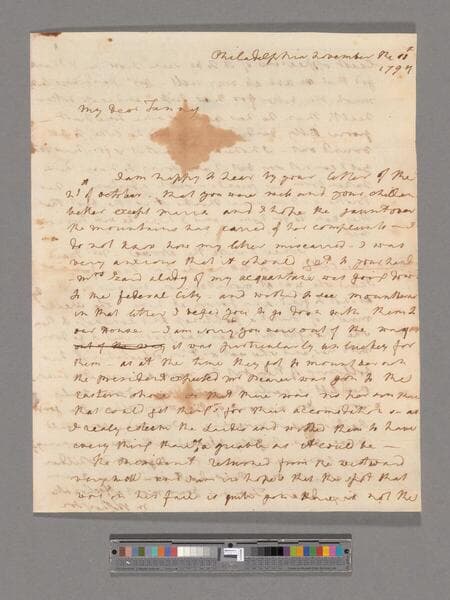 Philadelphia November the 11th
1794
My dear Fanny
I am happy to hear by your letter of the
21st of october that you were well and your children
better except maria and I hope the jaunt over
the mountains has carred of her complaints – I
do not know how my letter miscarred – I was
very anxious that it should get to your hand
mrs a lady of my acquantance was going down
to the federal City and wished to see mountvernon
in that letter I beged you to go down with them to
our House – I am sorry you were out of the way
out of the way it was particularly unluckey for
them – as at the time they got to mountvernon
the president expected mr Pearce was gon to the
Eastern shore so that there was no person there
that could get things for their accomodation as
I realy esteem the Ladies and wished them to have
every thing thare as agreable as it could be –
The President returned from the westward
very well – and now in hopes that the spot that
was on his face is quite gon there is not the